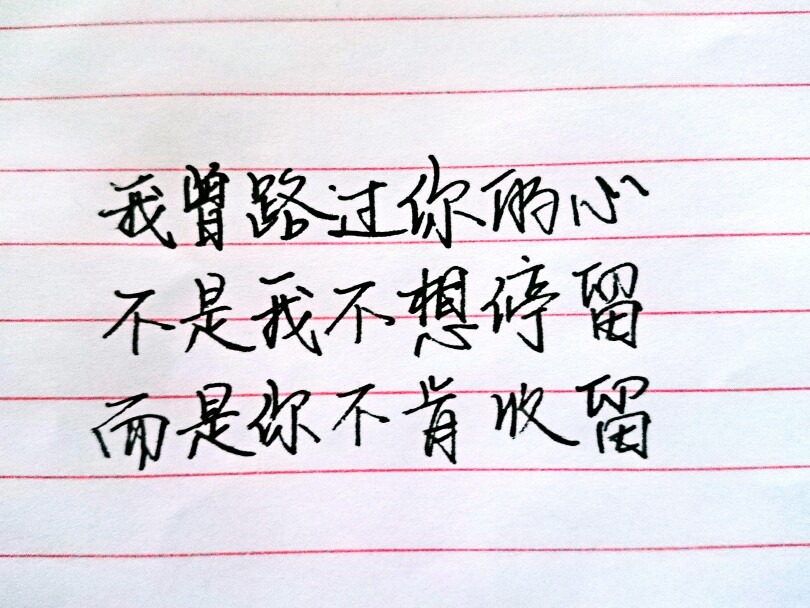 我曾路过你的心
不是我不想停留
而是你不肯收留